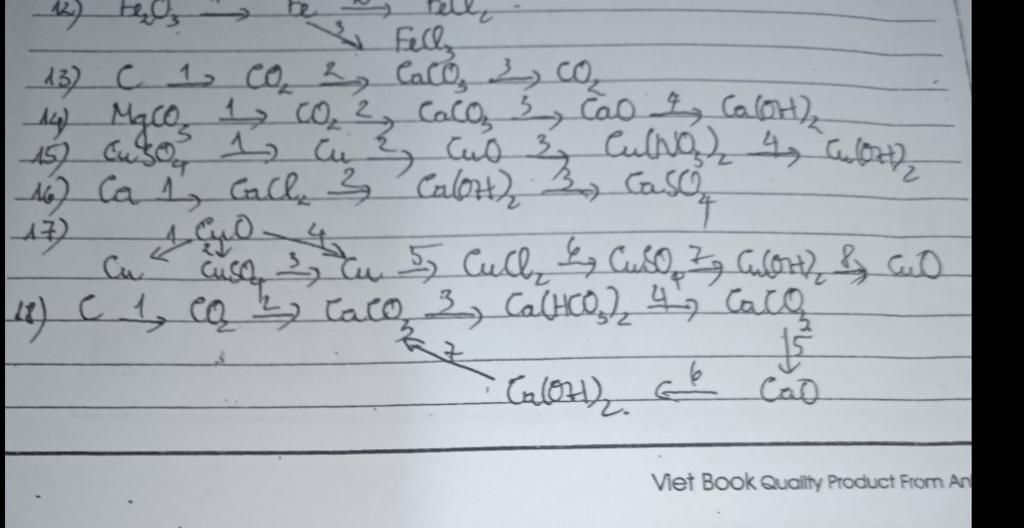 12) Fe₂O₃ → Fe → FeCl₂
3↘ FeCl₃
13) C 1→ CO₂ 2→ CaCO₃ 3→ CO₂
14) MgCO₃ 1→ CO₂ 2→ CaCO₃ 3→ CaO 4→ Ca(OH)₂
15) CuSO₄ 1→ Cu 2→ CuO 3→ Cu(NO₃)₂ 4→ Cu(OH)₂
16) Ca 1→ CaCl₂ 2→ Ca(OH)₂ 3→ CaSO₄
17) 1 CuO 4
Cu 2 CuSO₄ 3→ Cu 5→ CuCl₂ 6→ CuSO₄ 7→ Cu(OH)₂ 8→ CuO
18) C 1→ CO₂ 2→ CaCO₃ 3→ Ca(HCO₃)₂ 4→ CaCO₃
7 ↓5
Ca(OH)₂. ←6 CaO
Viet Book Quality Product From An